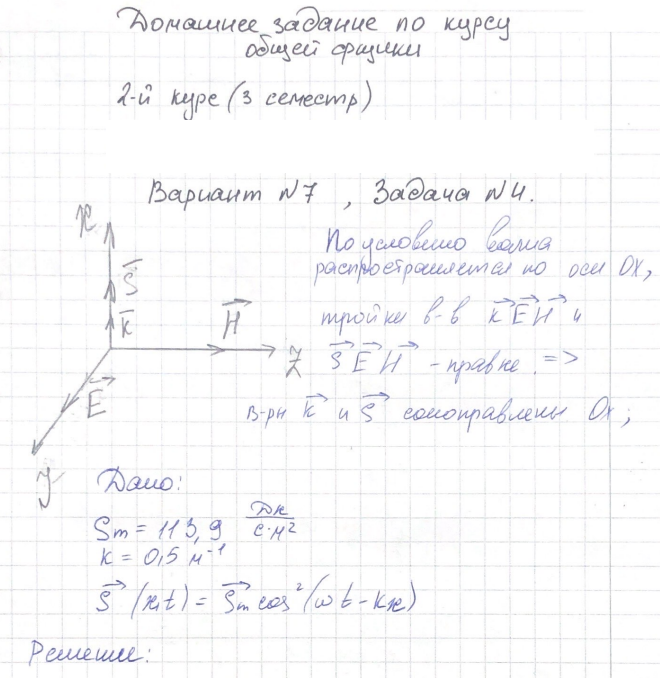 Домашнее задание по курсу
общей физики
2-й курс (3 семестр)
Вариант N7 , Задача N4.
X
По условию волна
распространяется по оси OX,
S⃗
k⃗
H⃗
тройки в-в k⃗ E⃗ H⃗ и
Z
S⃗ E⃗ H⃗ - правые. =>
E⃗
в-ры k⃗ и S⃗ сонаправлены Ox;
y
Дано:
Sm = 113,9 Дж/с·м²
k = 0,5 м⁻¹
S⃗ (x,t) = S⃗m cos² (ωt - kx)
Решение: